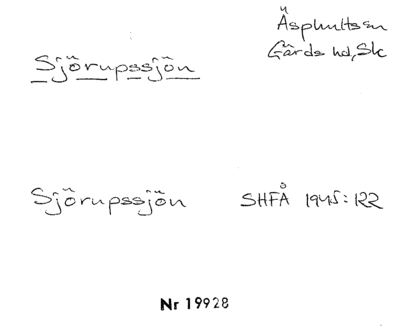 Äsphults sn
Gärds hd, Sk
Sjörupssjön
Sjörupssjön SHFÅ 1945:122
Nr 19928